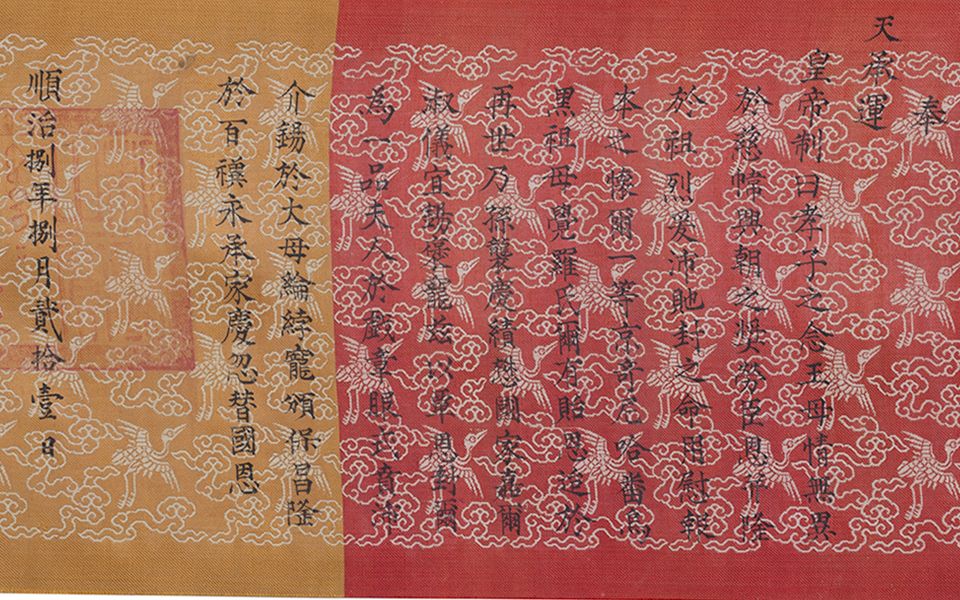 奉
天承運
皇帝制曰孝子之念王母情無異
於慈幃興朝之獎勞臣恩并隆
於祖烈爰沛貤封之命用慰報
本之懷爾一等京奇尼哈番烏
黑祖母覺羅氏爾有貽恩迨於
再世乃孫襲慶績懋關家嘉爾
淑儀宜錫褒寵茲以覃恩封爾
為一品夫人於戲章服式賁沛
介錫於大母綸綍寵頒保昌隆
於百禩永承家慶忽替國恩
順治捌年捌月貳拾壹日